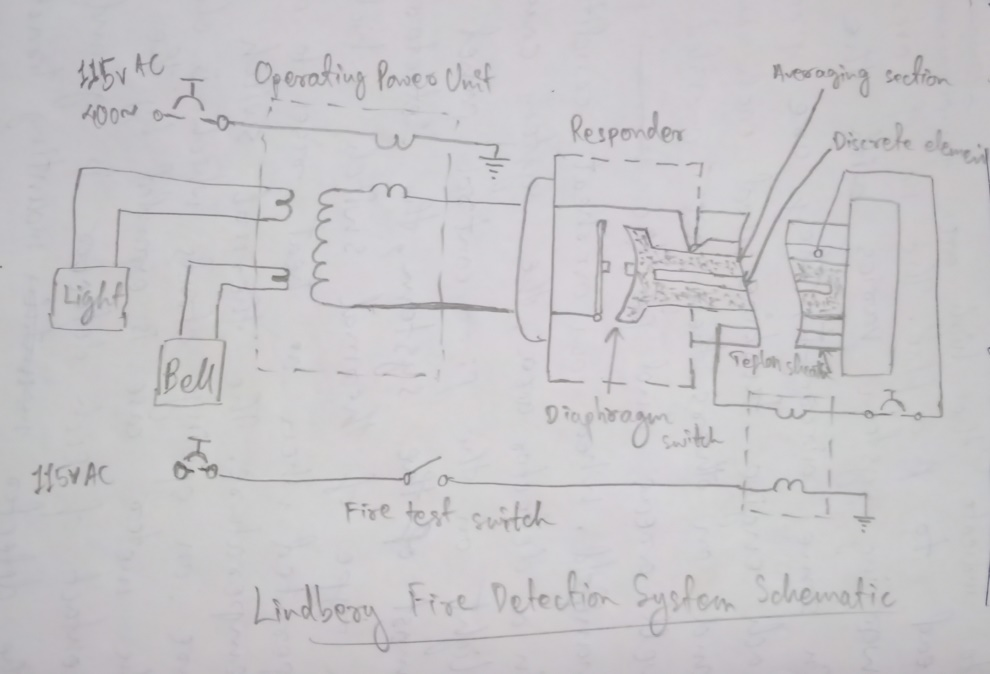 115v AC
400~
Operating Power Unit
Averaging section
Responder
Discrete element
Light
Bell
Teplon sheath
Diaphragm
switch
115v AC
Fire test switch
Lindberg Fire Detection System Schematic